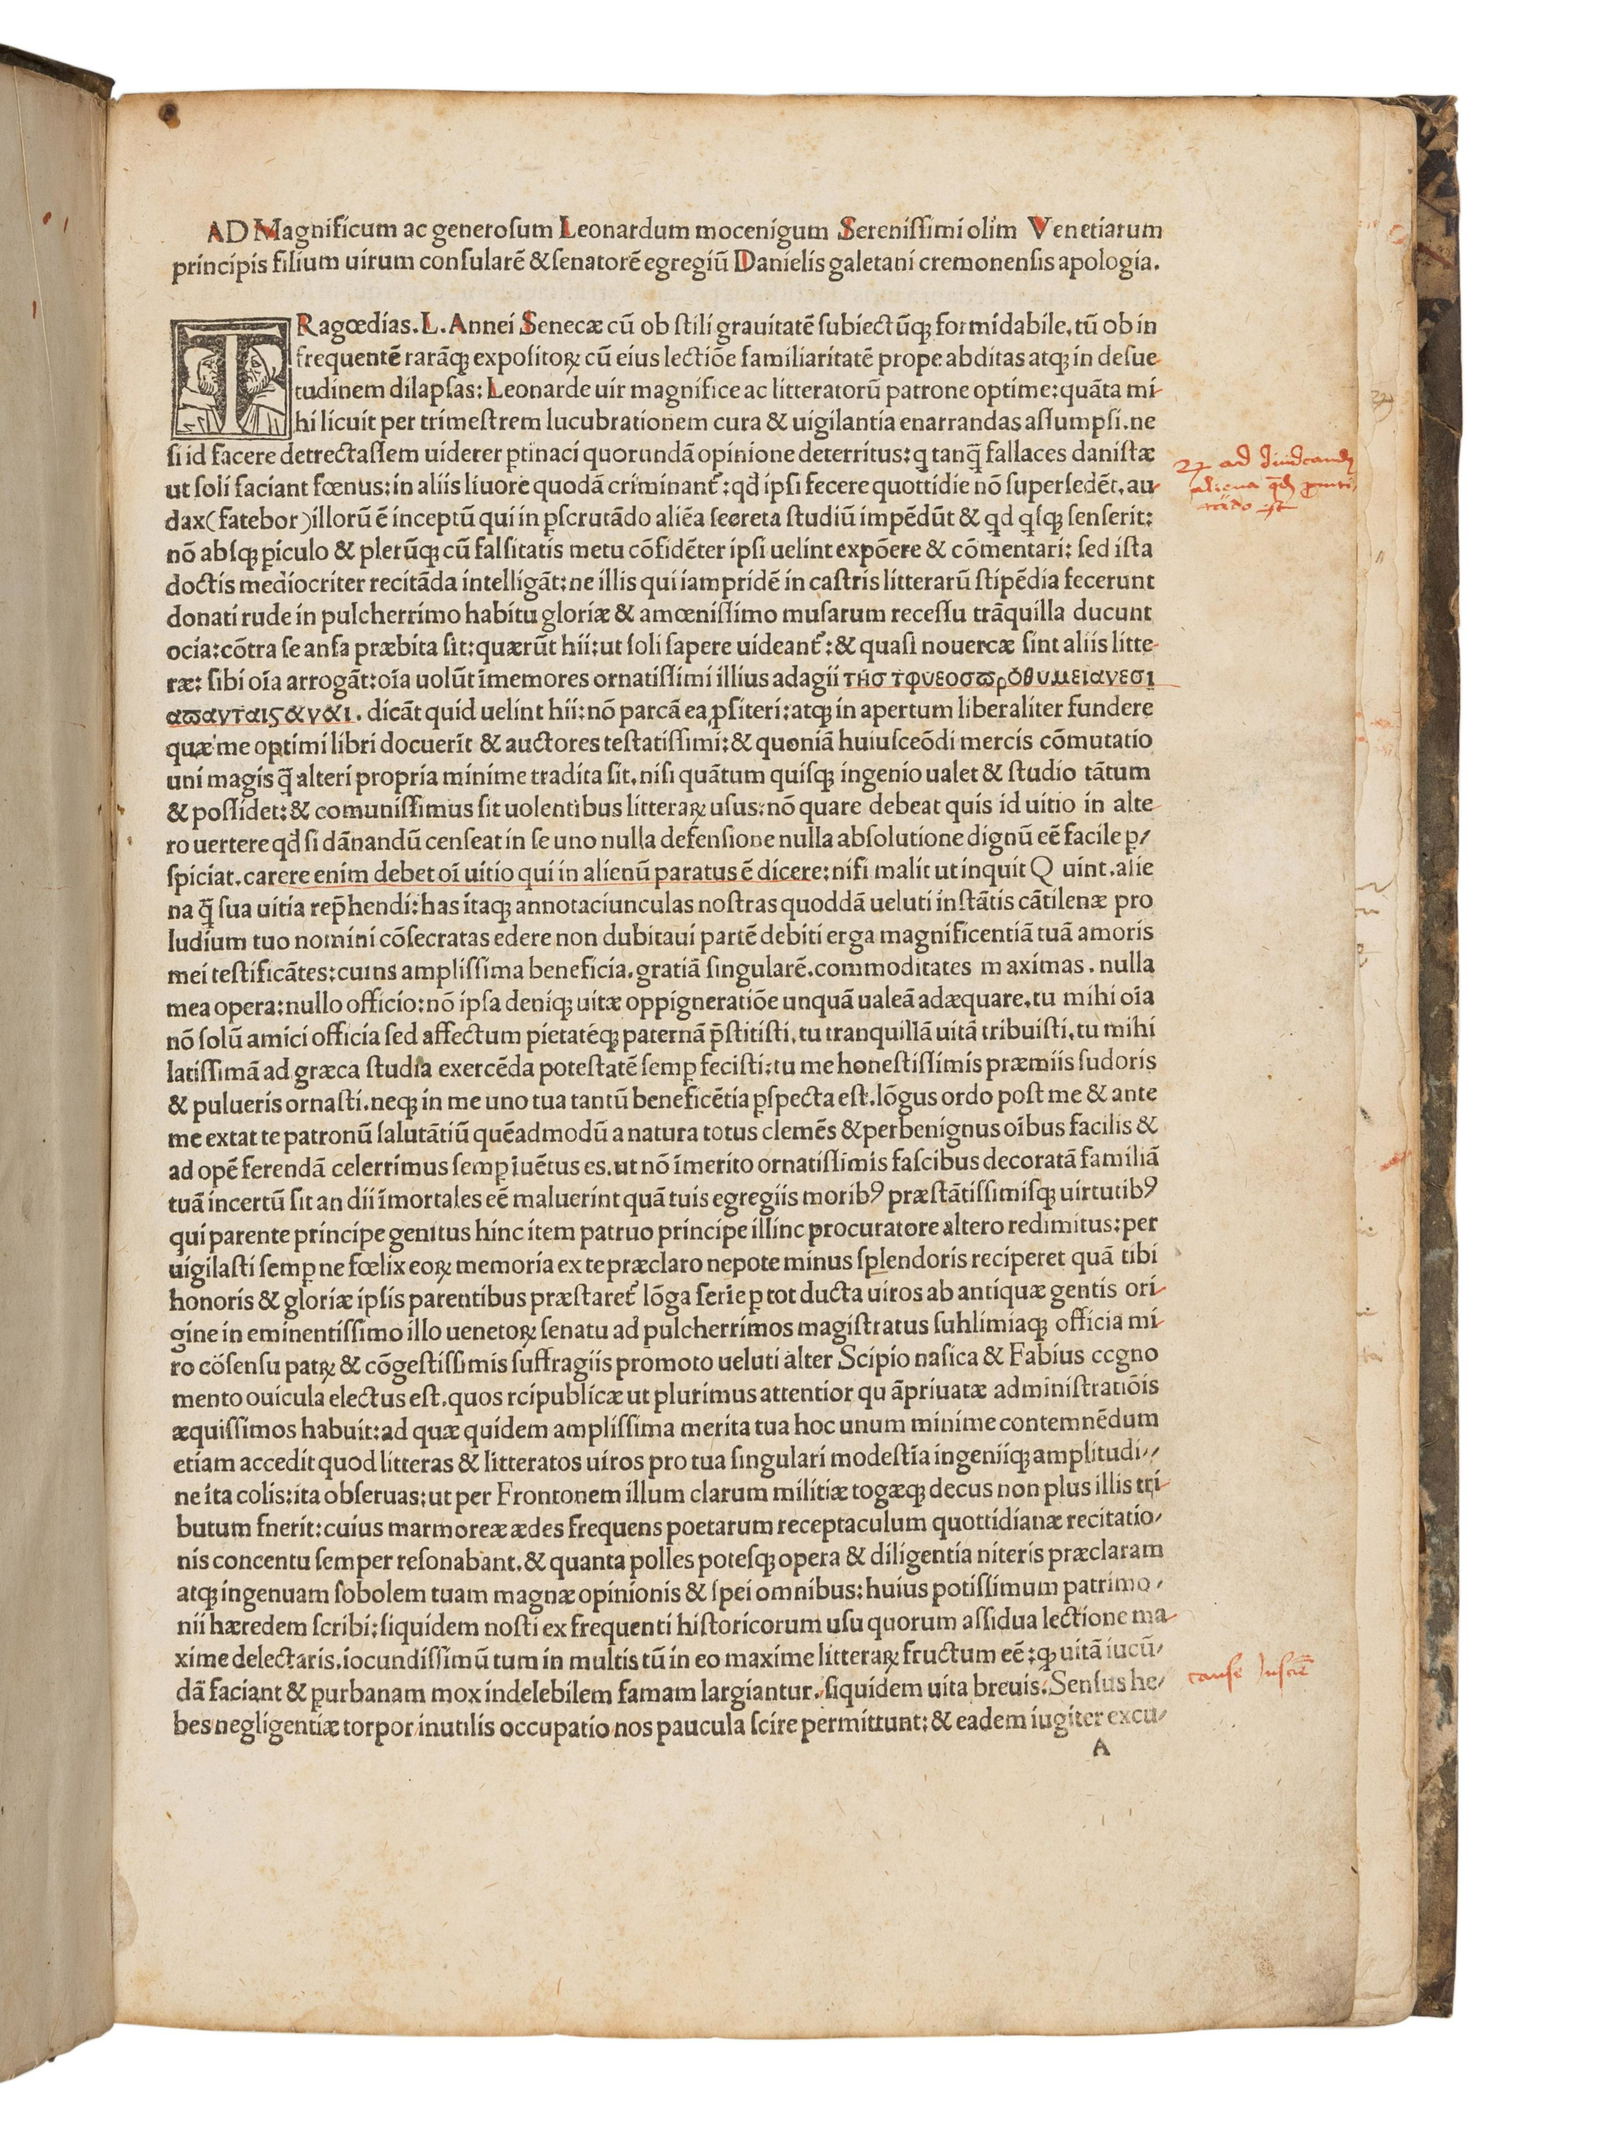 AD Magnificum ac generoſum Leonardum mocenigum Sereniſſimi olim Venetiarum
principis filium uirum conſularē & ſenatorē egregiū Danielis galetani cremonenſis apologia.
TRagœdias. L. Annei Senecæ cū ob ſtili grauitatē ſubiectūqꝫ formidabile, tū ob in
frequentē rarāqꝫ expoſitoꝝ cū eius lectiōe familiaritatē prope abditas atqꝫ in deſue-
tudinem dilapſas: Leonarde uir magnifice ac litteratorū patrone optime: quāta mi-
hi licuit per trimeſtrem lucubrationem cura & uigilantia enarrandas aſſumpſi. ne
ſi id facere detrectaſſem uiderer ꝑtinaci quorundā opinione deterritus: ꝗ tanꝗ̄ fallaces daniſtæ
ut ſoli faciant fœnus: in aliis liuore quodā criminant᷑: qd̄ ipſi fecere quottidie nō ſuperſedēt. au-
dax (fatebor) illorū ē inceptū qui in ꝑſcrutādo aliēa ſecreta ſtudiū impēdūt & ꝗd ꝗſqꝫ ſenſerit:
nō abſqꝫ ꝑiculo & pletūqꝫ cū falſitatis metu cōfidēter ipſi uelint expōere & cōmentari: ſed iſta
doctis mediocriter recitāda intelligāt: ne illis qui iampridē in caſtris litterarū ſtipēdia fecerunt
donati rude in pulcherrimo habitu gloriæ & amœniſſimo muſarum receſſu trāquilla ducunt
ocia: cōtra ſe anſa præbita ſit: quærūt hii: ut ſoli ſapere uideant᷑: & quaſi nouercæ ſint aliis litte-
ræ: ſibi oīa arrogāt: oīa uolūt īmemores ornatiſſimi illius adagii τήσ τφυεοσϖρόθυμειανεσι
αϖανταιςάνάι. dicāt quid uelint hii: nō parcā ea ꝓfiteri: atqꝫ in apertum liberaliter fundere
quæ me optimi libri docuerīt & auctores teſtatiſſimi: & quoniā huiuſceōdi mercis cōmutatio
uni magis ꝗ̄ alteri propria minime tradita ſit. niſi quātum quiſqꝫ ingenio ualet & ſtudio tātum
& poſſidet: & comuniſſimus ſit uolentibus litteraꝝ uſus: nō quare debeat quis id uitio in alte-
ro uertere qd̄ ſi dānandū cenſeat in ſe uno nulla defenſione nulla abſolutione dignū eē facile ꝑ-
ſpiciat. carere enim debet oī uitio qui in alienū paratus ē dicere: niſi malit ut inquit Quint. alie
na ꝗ̄ ſua uitia rep̄hendi: has itaqꝫ annotaciunculas noſtras quoddā ueluti inſtātis cātilenæ pro
ludium tuo nomini cōſecratas edere non dubitaui partē debiti erga magnificentiā tuā amoris
mei teſtificātes: cuius ampliſſima beneficia. gratiā ſingularē. commoditates maximas. nulla
mea opera: nullo officio: nō ipſa deniqꝫ uitæ oppigneratiōe unquā ualeā adæquare. tu mihi oīa
nō ſolū amici officia ſed affectum pietatéqꝫ paternā p̄ſtitiſti, tu tranquillā uitā tribuiſti, tu mihi
latiſſimā ad græca ſtudia exercēda poteſtatē ſemꝑ feciſti: tu me honeſtiſſimis præmiis ſudoris
& pulueris ornaſti. neqꝫ in me uno tua tantū beneficētia ꝑſpecta eſt. lōgus ordo poſt me & ante
me extat te patronū ſalutātiū quēadmodū a natura totus clemēs & perbenignus oībus facilis &
ad opē ferendā celerrimus ſemꝑ īuētus es. ut nō īmerito ornatiſſimis faſcibus decoratā familiā
tuā incertū ſit an dii īmortales eē maluerint quā tuis egregiis moribꝰ præſtātiſſimiſqꝫ uirtutibꝰ
qui parente principe genitus hinc item patruo principe illinc procuratore altero redimitus: per
uigilaſti ſemꝑ ne fœlix eoꝝ memoria ex te præclaro nepote minus ſplendoris reciperet quā tibi
honoris & gloriæ ipſis parentibus præſtaret᷑ lōga ſerie ꝑ tot ducta uiros ab antiquæ gentis ori-
gine in eminentiſſimo illo uenetoꝝ ſenatu ad pulcherrimos magiſtratus ſuhlimiaqꝫ officia mi-
ro cōſenſu patꝝ & cōgeſtiſſimis ſuffragiis promoto ueluti alter Scipio naſica & Fabius ccgno
mento ouicula electus eſt. quos rcipublicæ ut plurimus attentior qu āpriuatæ adminiſtratiōis
æquiſſimos habuit: ad quæ quidem ampliſſima merita tua hoc unum minime contemnēdum
etiam accedit quod litteras & litteratos uiros pro tua ſingulari modeſtia ingeniiqꝫ amplitudi-
ne ita colis: ita obſeruas: ut per Frontonem illum clarum militiæ togæqꝫ decus non plus illis tri-
butum fnerit: cuius marmoreæ ædes frequens poetarum receptaculum quottidianæ recitatio-
nis concentu ſemper reſonabant. & quanta polles poteſqꝫ opera & diligentia niteris præclaram
atqꝫ ingenuam ſobolem tuam magnæ opinionis & ſpei omnibus: huius potiſſimum patrimo-
nii hæredem ſcribi: ſiquidem noſti ex frequenti hiſtoricorum uſu quorum aſſidua lectione ma-
xime delectaris. iocundiſſimū tum in multis tū in eo maxime litteraꝝ fructum eē: ꝙ uitā iucū-
dā faciant & ꝑurbanam mox indelebilem famam largiantur. ſiquidem uita breuis. Senſus he-
bes negligentiæ torpor inutilis occupatio nos paucula ſcire permittunt: & eadem iugiter excu-
A
ad Iudicandū
aliena
cauſe Inſcie